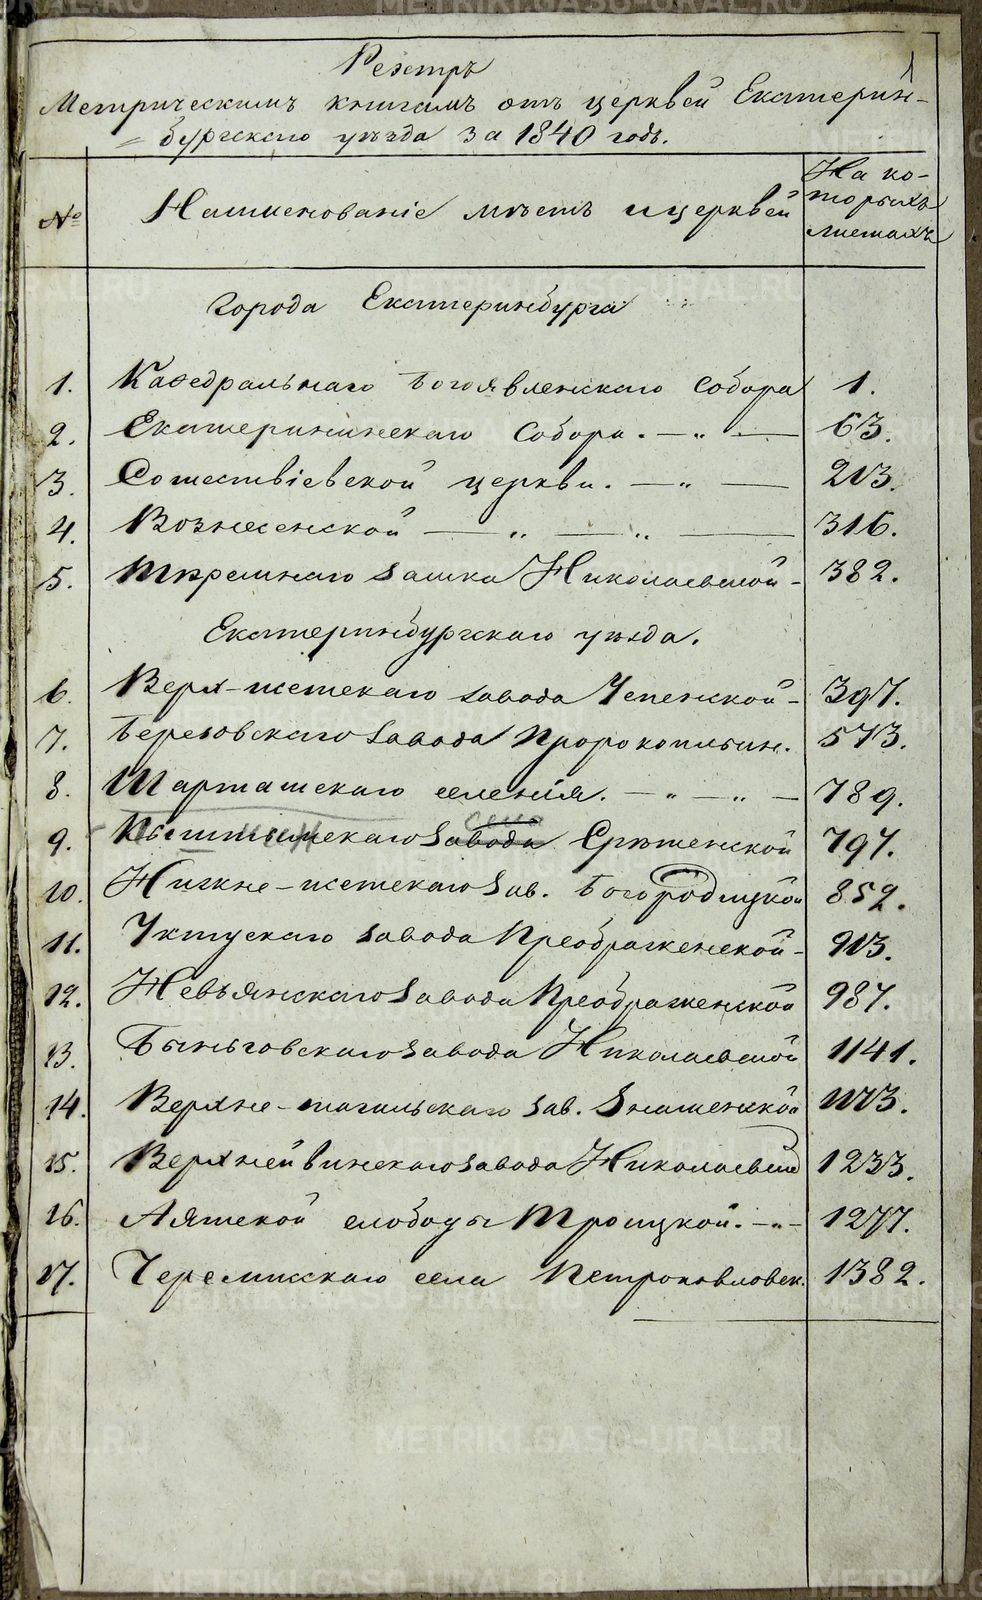 METRIKI.GASO-URAL.RU
1
Реэстръ
Метрическимъ книгамъ отъ церквей Екатерин-
=бургскаго уѣзда за 1840 годъ.
№ Наименованіе мѣстъ и церквей На ко-
торыхъ
листахъ
Города Екатеринбурга
1. Кафедральнаго Богоявленскаго Собора 1.
2. Екатерининскаго Собора. — „ — 63.
3. Сошествіевской церкви. — „ — 213.
4. Вознесенской — „ — „ — 316.
5. Тюремнаго замка Николаевской - 382.
Екатеринбургскаго уѣзда.
6. Верх-исетскаго завода Успенской - 397.
7. Березовскаго завода Пророкоильин. 573.
8. Шарташскаго селенія. — „ — „ — 789.
село
9. Кыштымскаго завода Срѣтенской 797.
10. Нижне-исетскаго зав. Богородицкой 852.
11. Уктусскаго завода Преображенской - 913.
12. Невьянскаго завода Преображенской 987.
13. Быньговскаго завода Николаевской 1141.
14. Верхне-тагильскаго зав. Знаменской 1173.
15. Верхнейвинскаго завода Николаевской 1233.
16. Аятской слободы Троицкой. - „ - 1277.
17. Черемисскаго села Петропавловск. 1382.
METRIKI.GASO-URAL.RU
METRIKI.GASO-URAL.RU